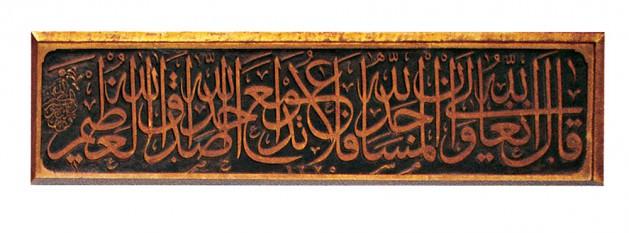 قال الله تعالى وأن المساجد لله فلا تدعوا مع الله أحدا صدق الله العظيم